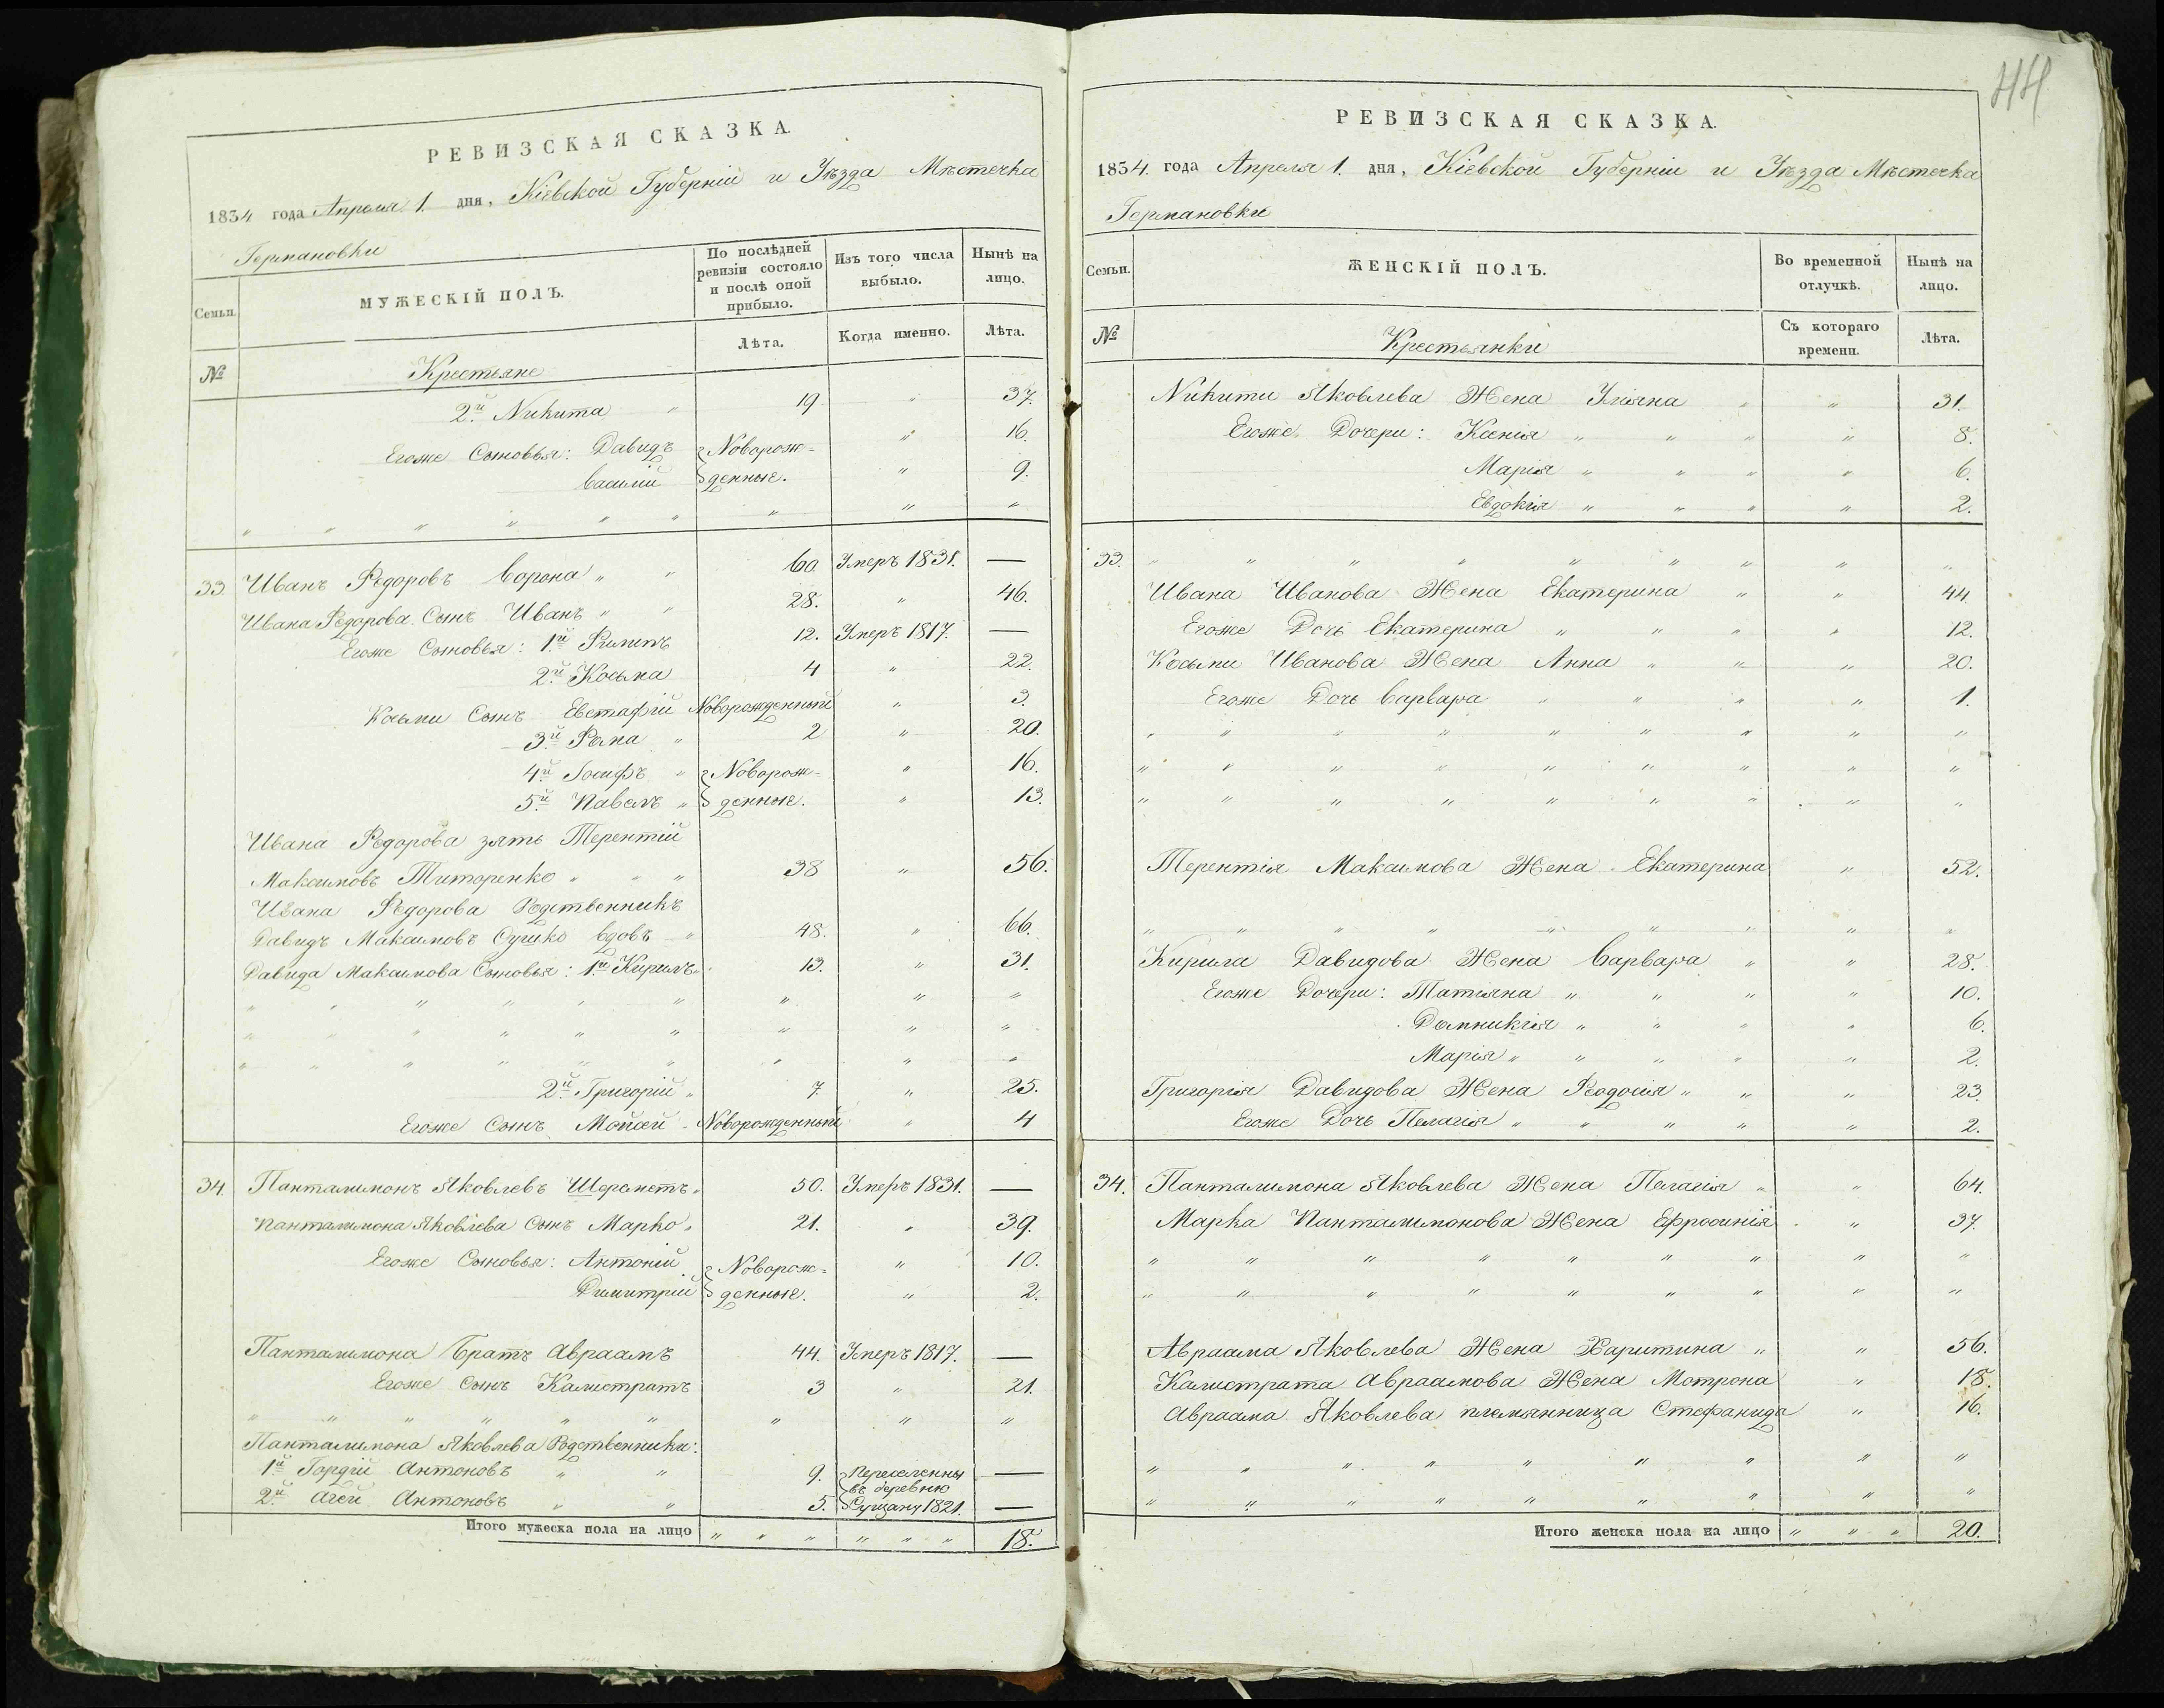 44
РЕВИЗСКАЯ СКАЗКА.
1834 года Апреля 1. дня, Кіевской Губерніи и Уѣзда Мѣстечка
Германовки
Семьи.
МУЖЕСКІЙ ПОЛЪ.
По послѣдней ревизіи состояло и послѣ оной прибыло.
Изъ того числа выбыло.
Нынѣ на лицо.
№
Крестьяне
Лѣта.
Когда именно.
Лѣта.
2й Никита " 19 " 37.
Егоже Сыновья: Давидъ Новорож= " 16.
Василій денные. " 9.
" " " " " " " " "
33. Иванъ Ѳедоровъ Ворона " " 60. Умеръ 1831. —
Ивана Ѳедорова Сынъ Иванъ " " 28. " 46.
Егоже Сыновья: 1й Филипъ 12. Умеръ 1817. —
2й Косьма 4 " 22.
Косьми Сынъ Евстафій Новорожденный " 3.
3й Фома " 2 " 20.
4й Іосифъ " Новорож= " 16.
5й Павелъ " денные. " 13.
Ивана Ѳедорова зять Терентій
Максимовъ Титаренко " " " 38 " 56.
Ивана Ѳедорова Родственникъ
Давидъ Максимовъ Сушко вдовъ " 48. " 66.
Давида Максимова Сыновья: 1й Кирилъ " 13. " 31.
" " " " " " " " "
" " " " " " " " "
" " " " " " " " "
2й Григорій " 7. " 25.
Егоже Сынъ Мойсей Новорожденный " 4
34. Панталимонъ Яковлевъ Шереметъ " 50. Умеръ 1831. —
Панталимона Яковлева Сынъ Марко " 21. " 39.
Егоже Сыновья: Антоній Новорож= " 10.
Димитрій денные. " 2.
Панталимона Братъ Авраамъ 44. Умеръ 1817. —
Егоже Сынъ Калистратъ 3 " 21.
" " " " " " " " "
Панталимона Яковлева Родственники:
1й Гордій Антоновъ " " 9. Переселенны —
въ деревню
2й Агей Антоновъ " " 5. 1821. —
Итого мужеска пола на лицо " " " " " " 18.
РЕВИЗСКАЯ СКАЗКА.
1834. года Апреля 1. дня, Кіевской Губерніи и Уѣзда Мѣстечка
Германовки
Семьи.
ЖЕНСКІЙ ПОЛЪ.
Во временной отлучкѣ.
Нынѣ на лицо.
№
Крестьянки
Съ котораго времени.
Лѣта.
Никити Яковлева Жена Уліяна " " 31.
Егоже Дочери: Ксенія " " " " 8.
Марія " " " " 6.
Евдокія " " " " 2.
33. " " " " " " " " "
Ивана Иванова Жена Екатерина " " 44.
Егоже Дочь Екатерина " " " " 12.
Косьми Иванова Жена Анна " " " 20.
Егоже Дочь Варвара " " " " 1.
" " " " " " " " "
" " " " " " " " "
" " " " " " " " "
Терентія Максимова Жена Екатерина " 52.
" " " " " " " " "
Кирила Давидова Жена Варвара " " 28.
Егоже Дочери: Татіяна " " " " 10.
Домникія " " " " 6.
Марія " " " " " 2.
Григорія Давидова Жена Ѳеодосія " " " 23.
Егоже Дочь Пелагія " " " " " 2.
34. Панталимона Яковлева Жена Пелагія " " 64.
Марка Панталимонова Жена Ефросинія " " 37.
" " " " " " " " "
" " " " " " " " "
Авраама Яковлева Жена Харитина " " 56.
Калистрата Авраамова Жена Мотрона " 18.
Авраама Яковлева племянница Стефанида " 16.
" " " " " " " " "
" " " " " " " " "
Итого женска пола на лицо " " " 20.